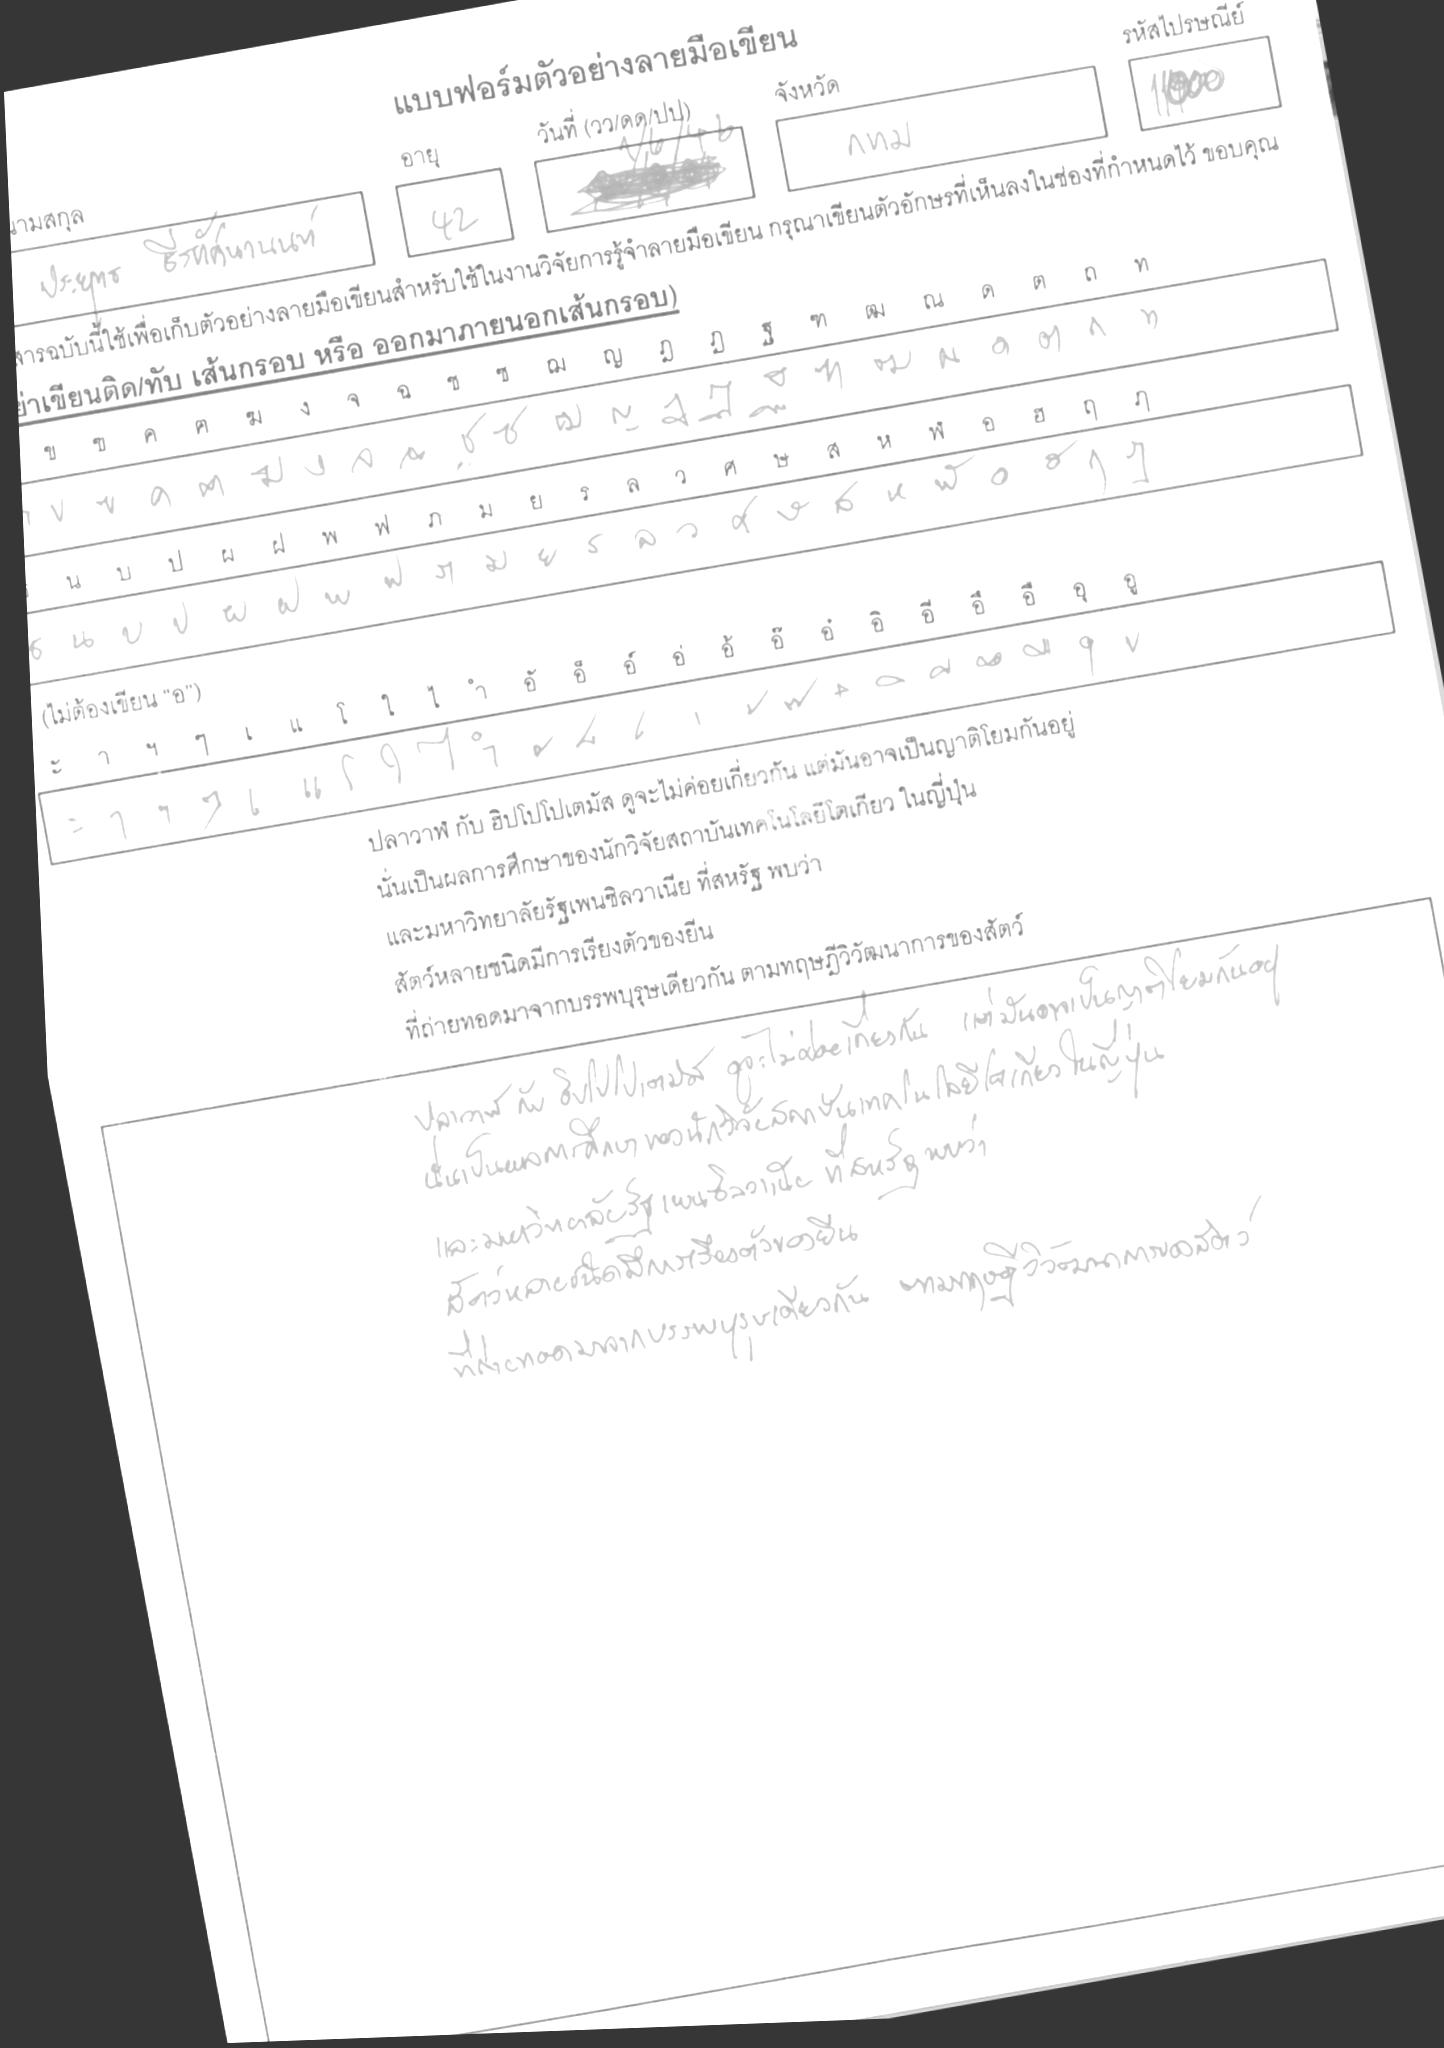 แบบฟอร์มตัวอย่างลายมือเขียน
นามสกุล อายุ วันที่ (วว/ดด/ปป) จังหวัด รหัสไปรษณีย์
ประยุทธ 42 กทม
สารฉบับนี้ใช้เพื่อเก็บตัวอย่างลายมือเขียนสำหรับใช้ในงานวิจัยการรู้จำลายมือเขียน กรุณาเขียนตัวอักษรที่เห็นลงในช่องที่กำหนดไว้ ขอบคุณ
ย่าเขียนติด/ทับ เส้นกรอบ หรือ ออกมาภายนอกเส้นกรอบ)
ข ฃ ค ฅ ฆ ง จ ฉ ช ซ ฌ ญ ฎ ฏ ฐ ฑ ฒ ณ ด ต ถ ท
ข ฃ ค ฅ ฆ ง จ ฉ ช ซ ฌ ญ ฎ ฏ ฐ ฑ ฒ ณ ด ต ถ ท
น บ ป ผ ฝ พ ฟ ภ ม ย ร ล ว ศ ษ ส ห ฬ อ ฮ ฤ ฦ
ธ น บ ป ผ ฝ พ ฟ ภ ม ย ร ล ว ศ ษ ส ห ฬ อ ฮ ฤ ฦ
(ไม่ต้องเขียน "อ")
ะ า ฯ ๆ เ แ โ ใ ไ ำ อั อ็ อ์ อ่ อ้ อ๊ อ๋ อิ อี อึ อื อุ อู
ะ า ฯ ๆ เ แ โ ใ ไ ำ
ปลาวาฬ กับ ฮิปโปโปเตมัส ดูจะไม่ค่อยเกี่ยวกัน แต่มันอาจเป็นญาติโยมกันอยู่
นั่นเป็นผลการศึกษาของนักวิจัยสถาบันเทคโนโลยีโตเกียว ในญี่ปุ่น
และมหาวิทยาลัยรัฐเพนซิลวาเนีย ที่สหรัฐ พบว่า
สัตว์หลายชนิดมีการเรียงตัวของยีน
ที่ถ่ายทอดมาจากบรรพบุรุษเดียวกัน ตามทฤษฎีวิวัฒนาการของสัตว์
ปลาวาฬ กับ ฮิปโปโปเตมัส ดูจะไม่ค่อยเกี่ยวกัน แต่มันอาจเป็นญาติโยมกันอยู่
นั่นเป็นผลการศึกษาของนักวิจัยสถาบันเทคโนโลยีโตเกียว ในญี่ปุ่น
และมหาวิทยาลัยรัฐเพนซิลวาเนีย ที่สหรัฐ พบว่า
สัตว์หลายชนิดมีการเรียงตัวของยีน
ที่ถ่ายทอดมาจากบรรพบุรุษเดียวกัน ตามทฤษฎีวิวัฒนาการของสัตว์